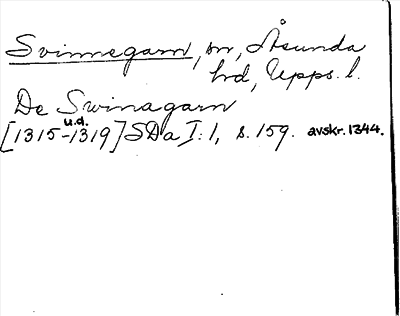 Svinnegarn, sn, Åsunda
hd, Upps. l.
De Swinagarn
u.d.
[1315-1319] SDa I:1, s. 159. avskr. 1344.